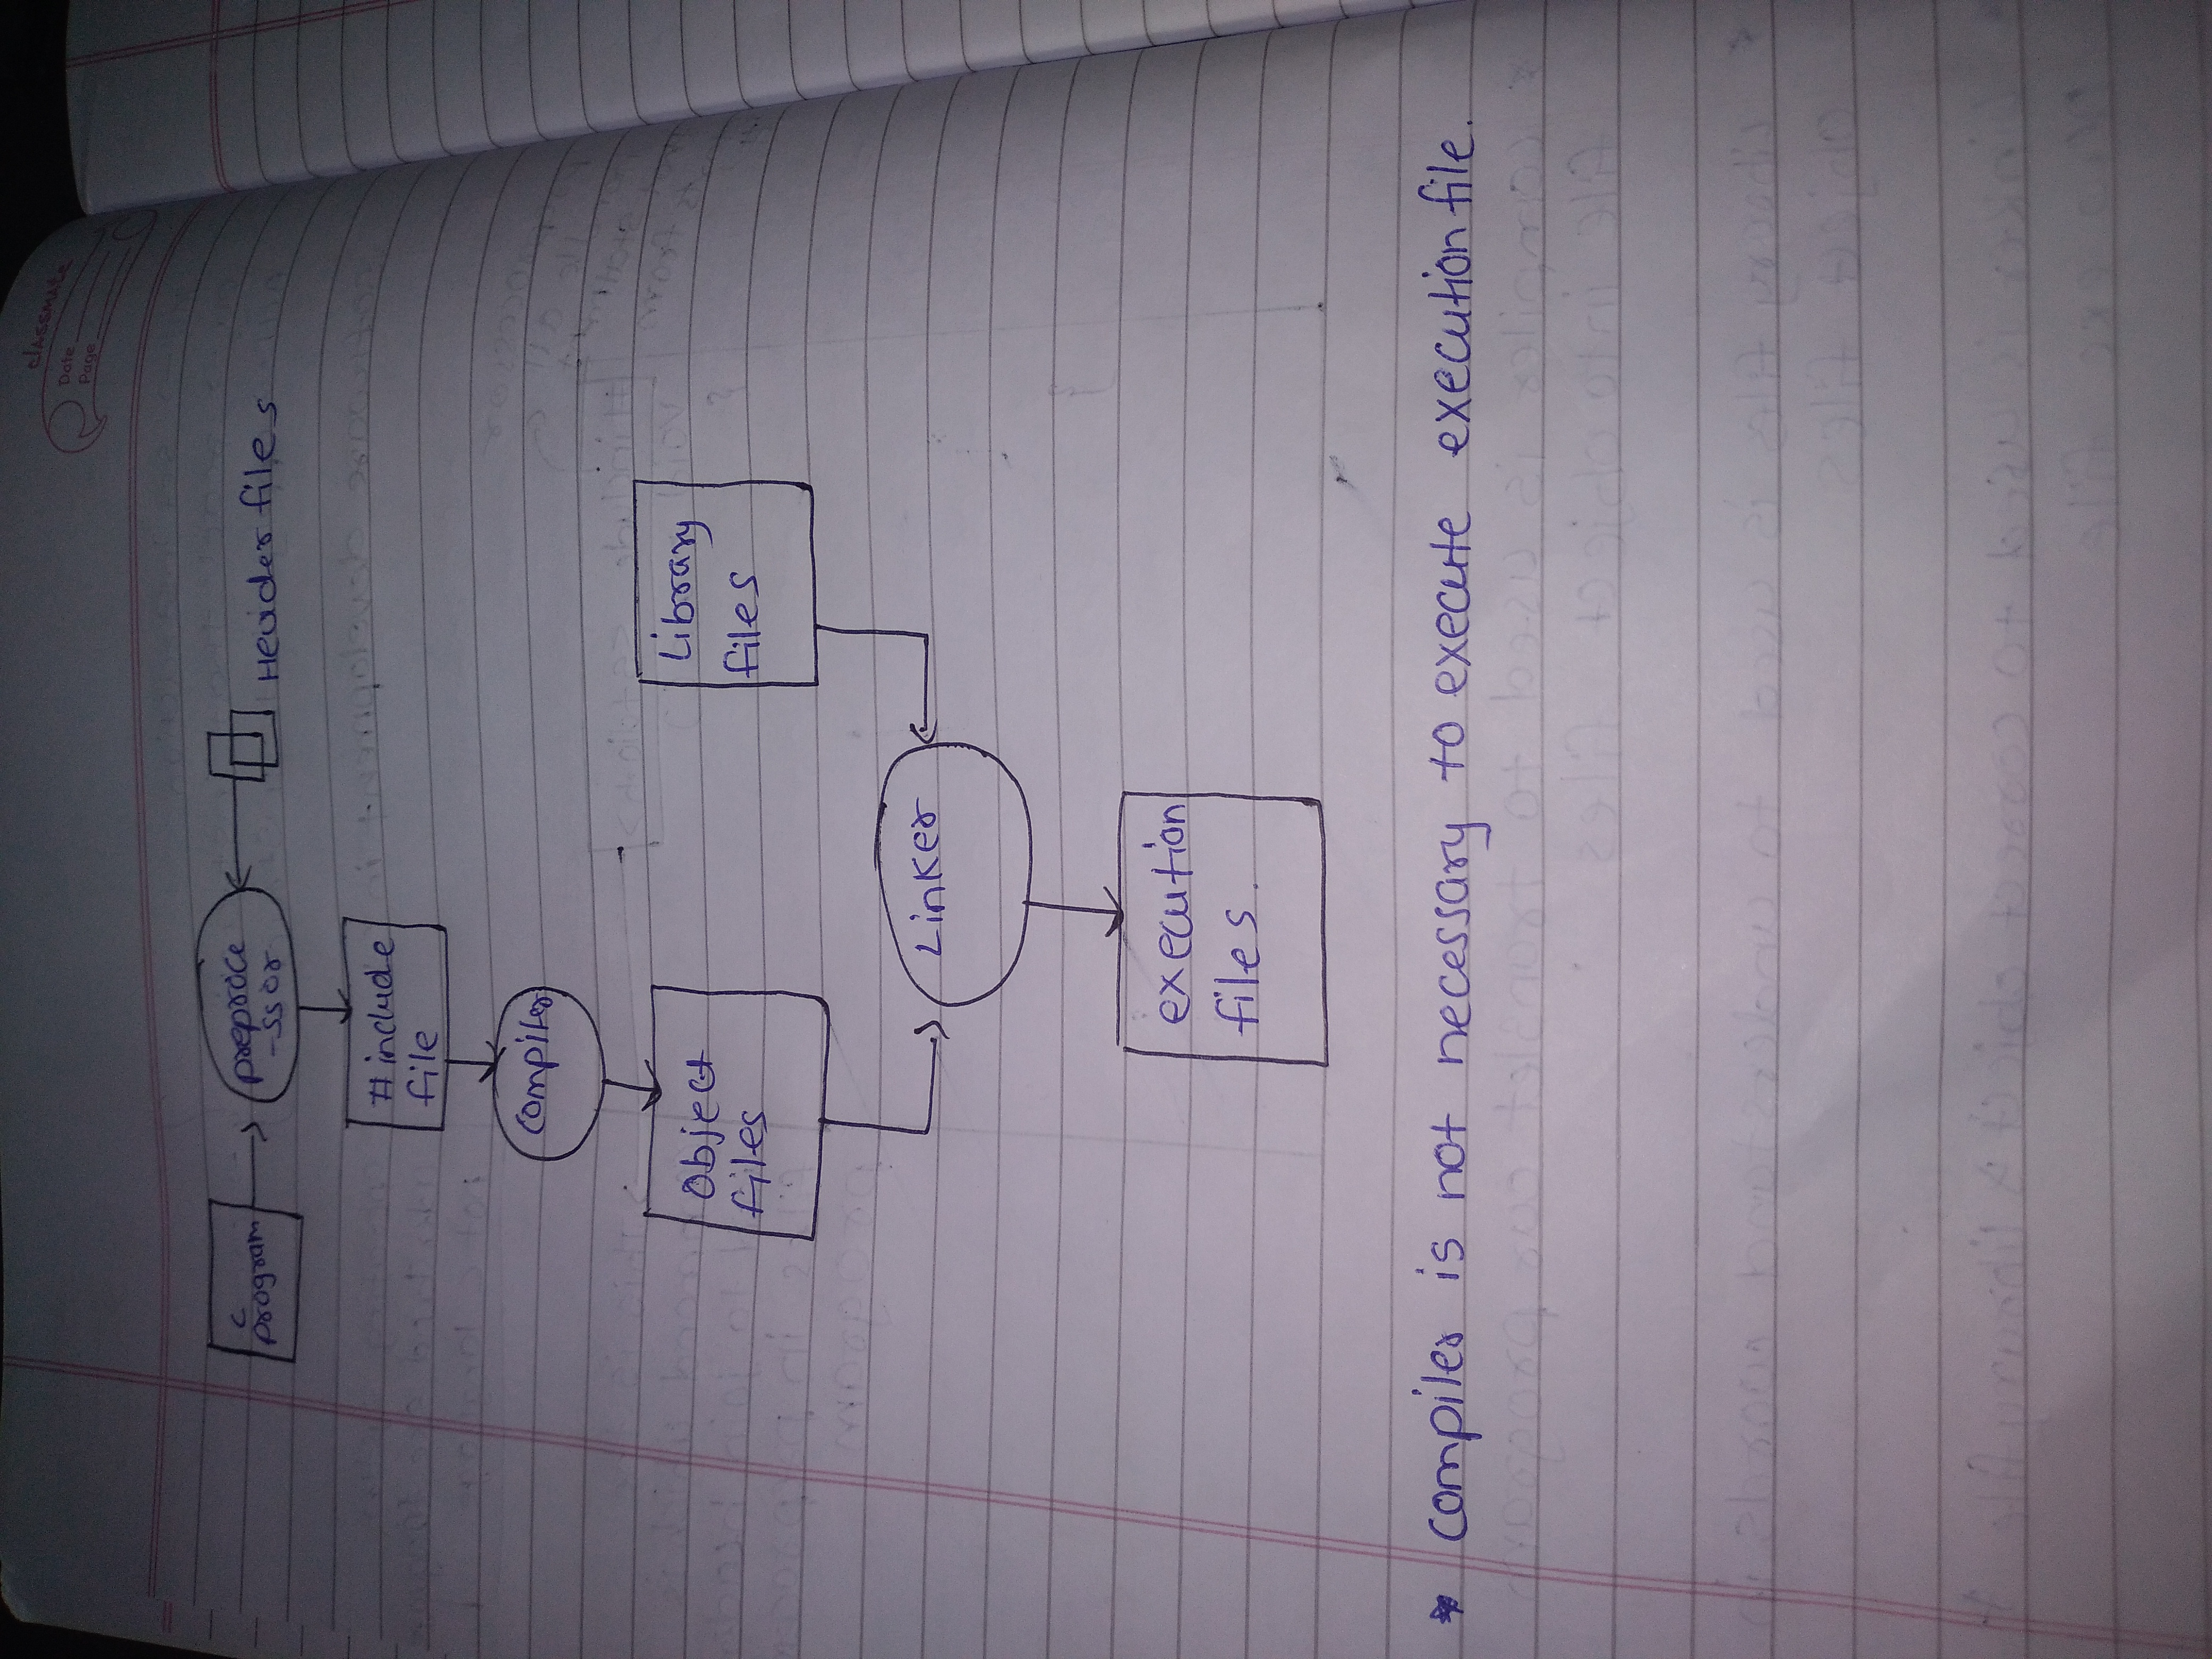 classmate
Date
Page
C
program
preproce
-ssor
Header files
# include
file
compiler
object
files
Library
files
Linker
execution
files.
* compiler is not necessary to execute execution file.